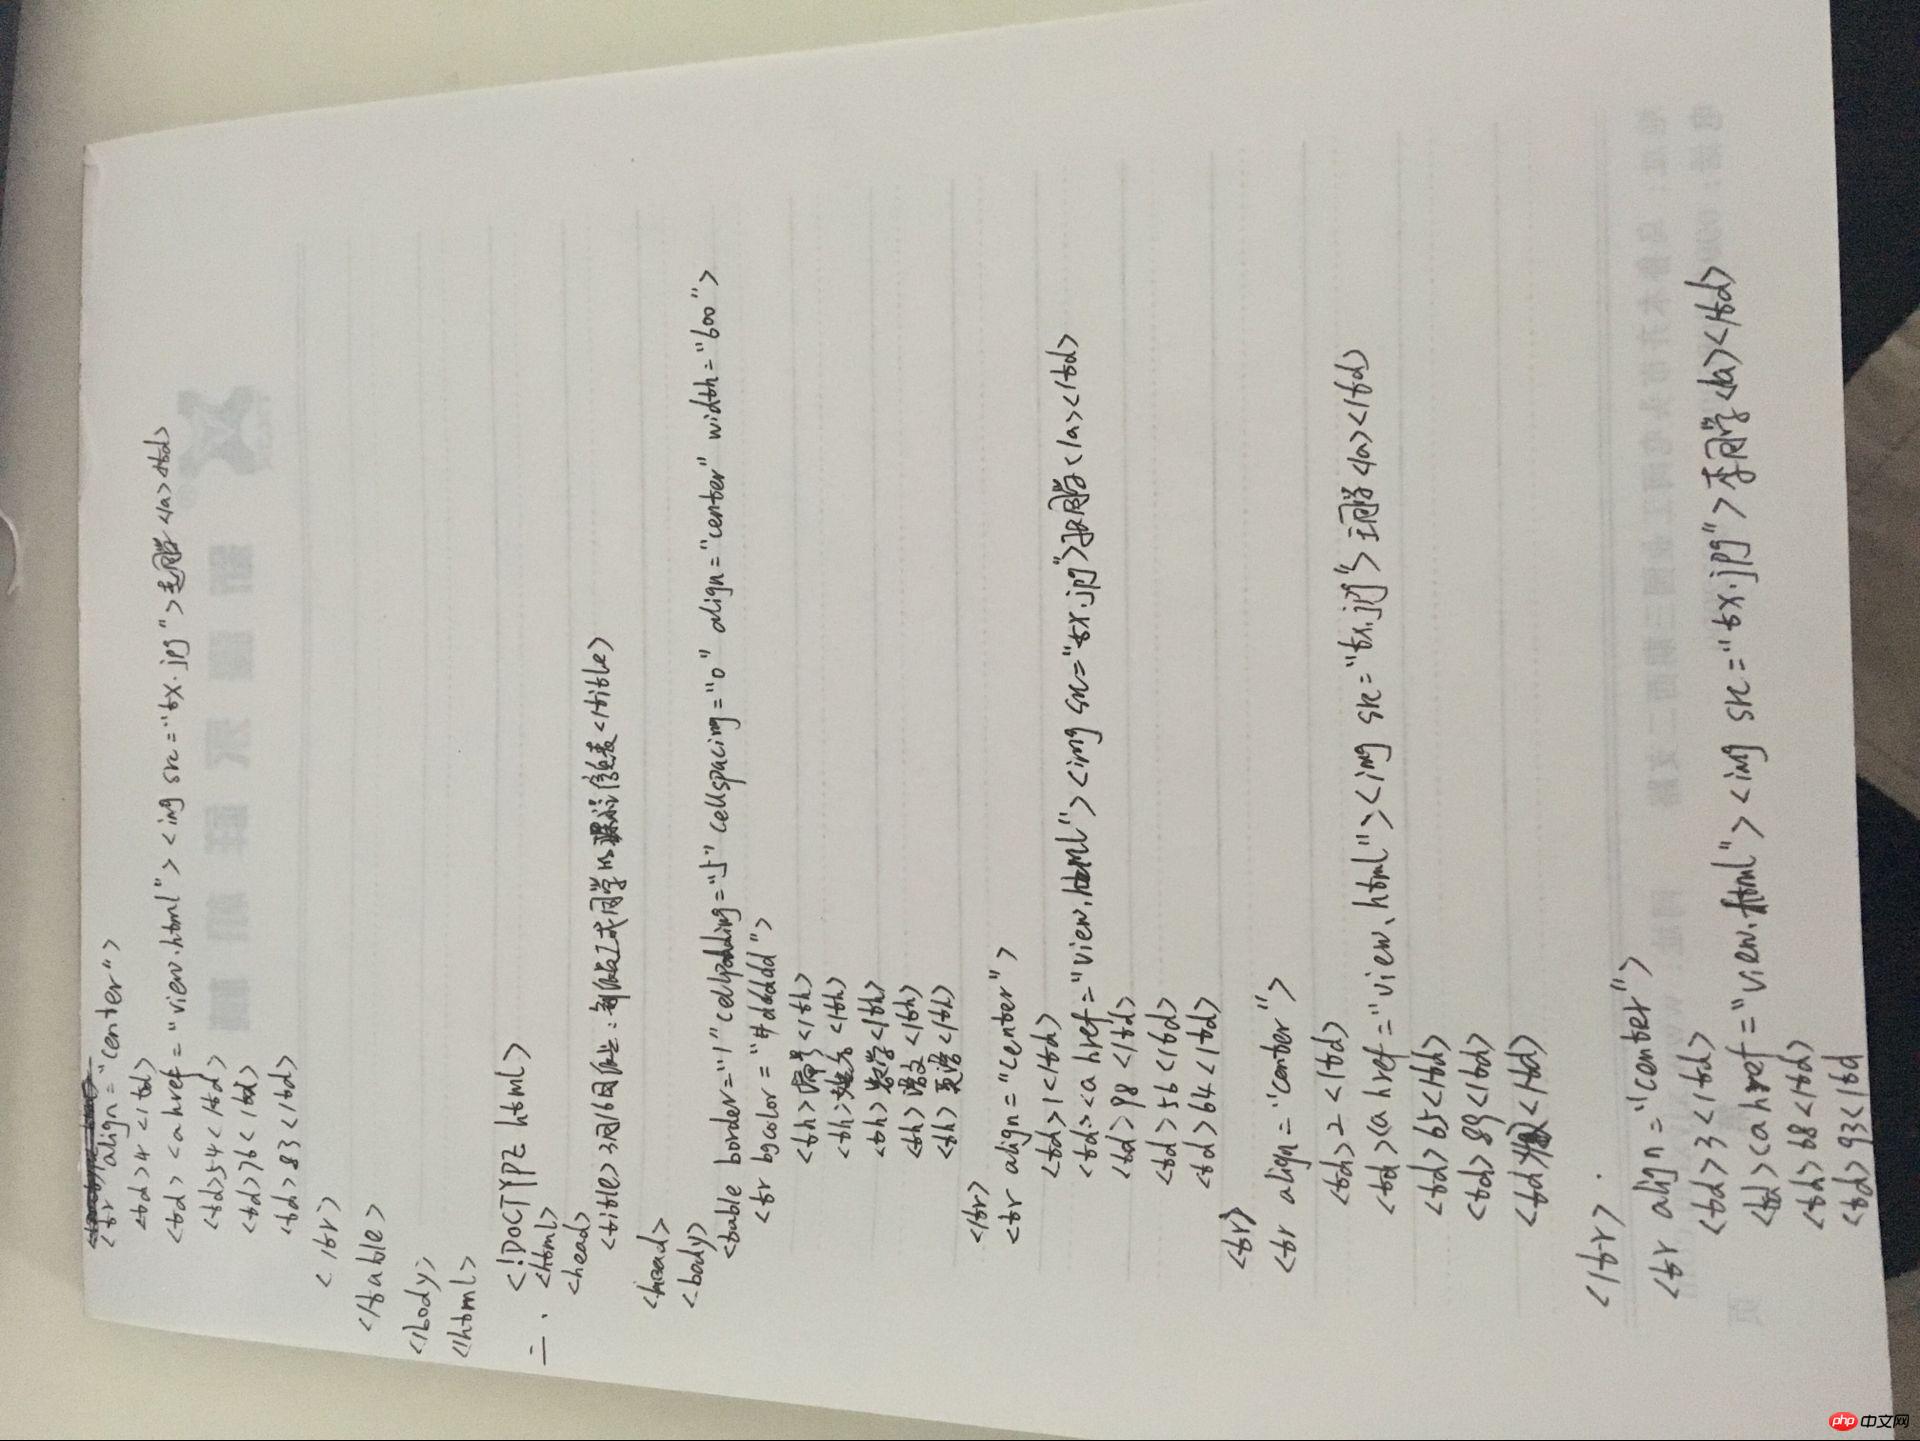 <tr align="center">
<td>4</td>
<td><a href="view.html"><img src="tx.jpg">毛同学</a></td>
<td>54</td>
<td>76</td>
<td>83</td>
</tr>
</table>
</body>
</html>
二、<!DOCTYPE html>
<html>
<head>
<title>3月16日作业:制作乙或同学的课业信息表</title>
</head>
<body>
<table border="1" cellpadding="5" cellspacing="0" align="center" width="600">
<tr bgcolor="#dddddd">
<th>编号</th>
<th>姓名</th>
<th>数学</th>
<th>语文</th>
<th>英语</th>
</tr>
<tr align="center">
<td>1</td>
<td><a href="view.html"><img src="tx.jpg">张同学</a></td>
<td>98</td>
<td>56</td>
<td>64</td>
<tr>
<tr align="center">
<td>2</td>
<td><a href="view.html"><img src="tx.jpg">王同学</a></td>
<td>65</td>
<td>89</td>
<td></td>
</tr>
<tr align="center">
<td>3</td>
<td><a href="view.html"><img src="tx.jpg">李同学</a></td>
<td>68</td>
<td>93</td
php 中文网